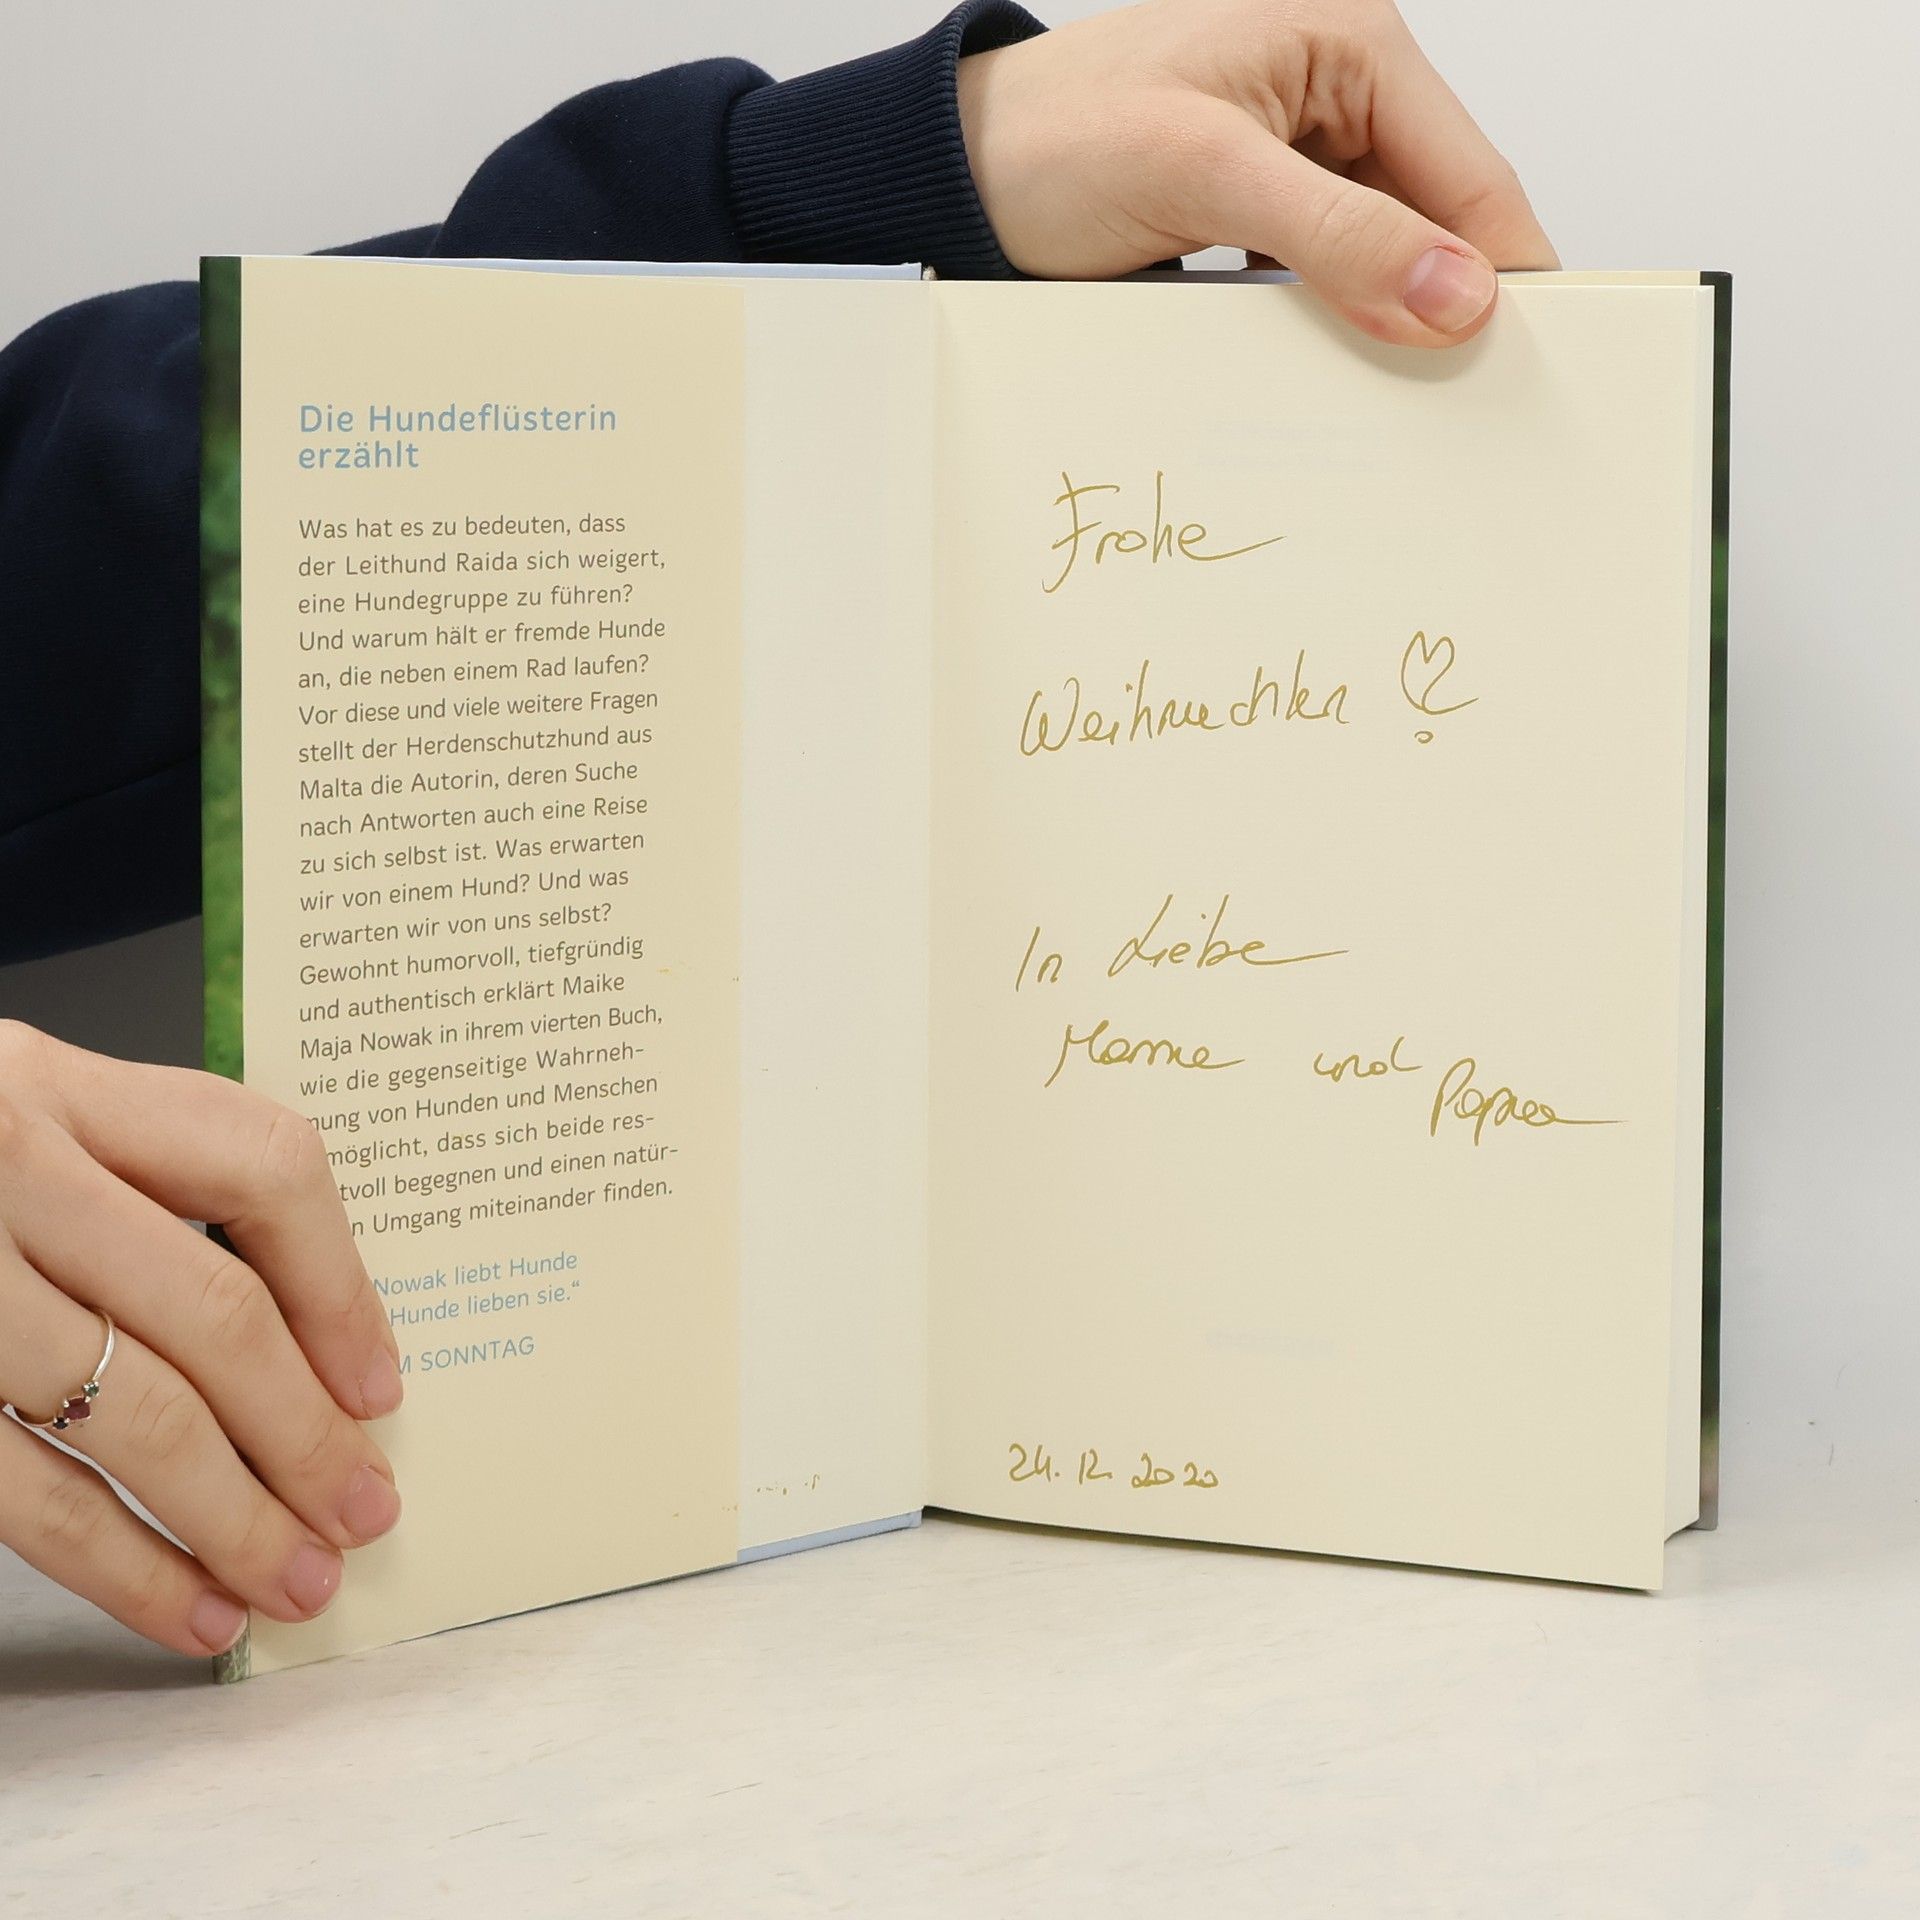 Die Hundeflüsterin
erzählt
Was hat es zu bedeuten, dass
der Leithund Raida sich weigert,
eine Hundegruppe zu führen?
Und warum hält er fremde Hunde
an, die neben einem Rad laufen?
Vor diese und viele weitere Fragen
stellt der Herdenschutzhund aus
Malta die Autorin, deren Suche
nach Antworten auch eine Reise
zu sich selbst ist. Was erwarten
wir von einem Hund? Und was
erwarten wir von uns selbst?
Gewohnt humorvoll, tiefgründig
und authentisch erklärt Maike
Maja Nowak in ihrem vierten Buch,
wie die gegenseitige Wahrneh-
mung von Hunden und Menschen
möglicht, dass sich beide res-
tvoll begegnen und einen natür-
n Umgang miteinander finden.
Nowak liebt Hunde
Hunde lieben sie.“
M SONNTAG
Frohe
Weihnachten
In Liebe
Mama und Papa
24. 12. 2020